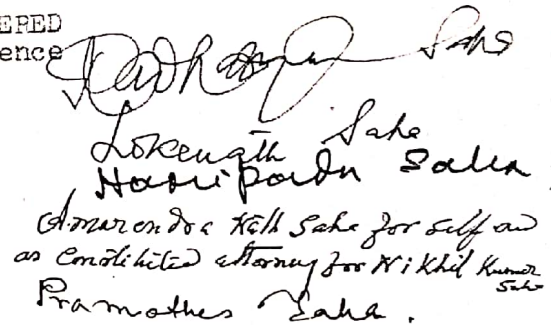 ERED
ence
Saha
Lokenath Saha
Haripada Saha
Amarendra Nath Saha for self and
as Constituted attorney for Nikhil Kumar
Saha
Pramothes Saha.